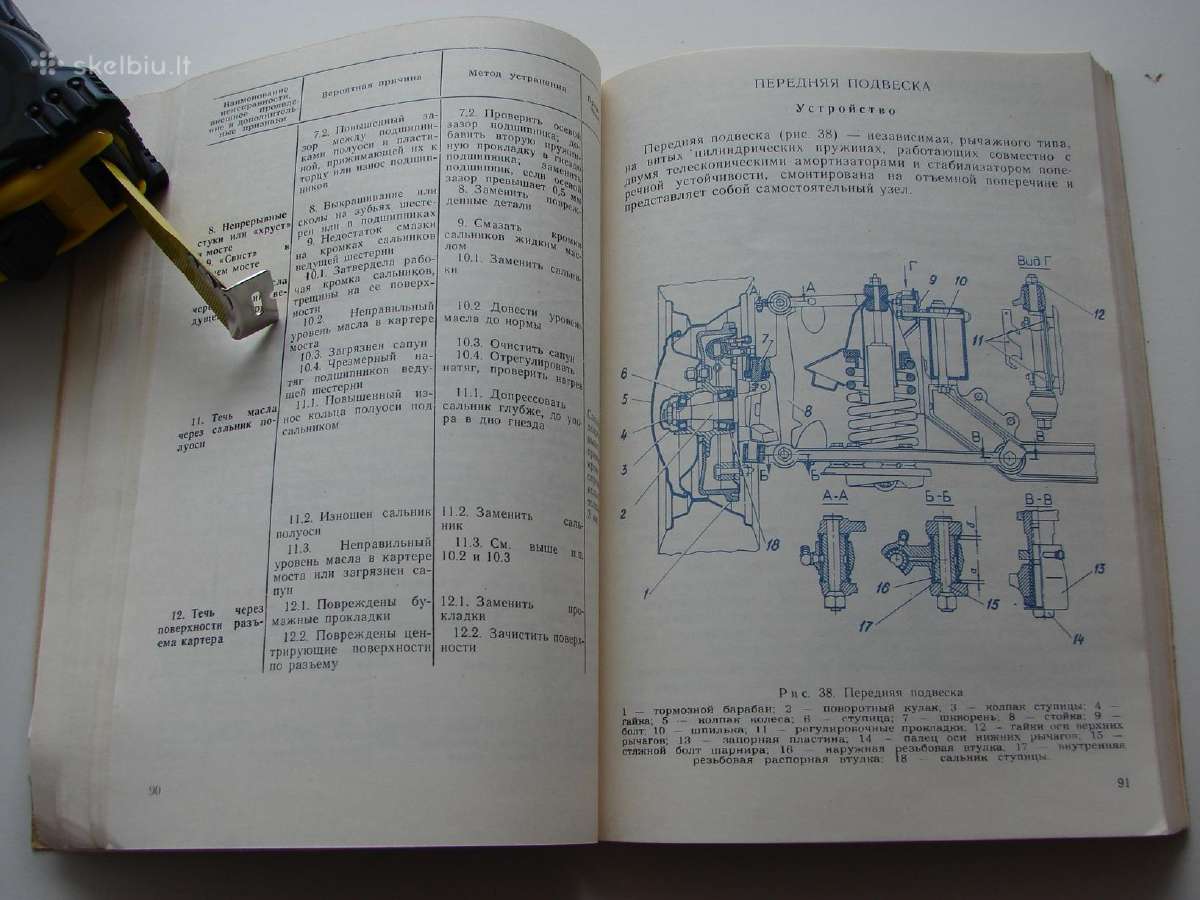 skelbiu.lt
Наименование
неисправности,
внешнее проявле-
ние и дополнитель-
ные признаки
Вероятная причина
Метод устранения
7.2. Повышенный за-
зор между подшипни-
ками полуоси и пласти-
ной, прижимающей их к
торцу или износ подшип-
ников
7.2. Проверить осевой
зазор подшипника; до-
бавить вторую пружин-
ную прокладку в гнездо
подшипника. Заменить
подшипник, если осевой
зазор превышает 0,5 мм
8. Непрерывные
стуки или «хруст»
в мосте
8. Выкрашивание или
сколы на зубьях шесте-
рен или в подшипниках
8. Заменить повреж-
денные детали
9. «Свист» в
мосте
9. Недостаток смазки
на кромках сальников
ведущей шестерни
9. Смазать кромки
сальников жидким мас-
лом
10.1. Затвердела рабо-
чая кромка сальников,
трещины на ее поверх-
ности
10.1. Заменить сальни-
ки
10.2. Неправильный
уровень масла в картере
моста
10.2 Довести уровень
масла до нормы
10.3. Загрязнен сапун
10.3. Очистить сапун
10.4. Чрезмерный на-
тяг подшипников веду-
щей шестерни
10.4. Отрегулировать
натяг, проверить нагрев
11. Течь масла
через сальник по-
луоси
11.1. Повышенный из-
нос кольца полуоси под
сальником
11.1. Допрессовать
сальник глубже, до упо-
ра в дно гнезда
11.2. Изношен сальник
полуоси
11.2. Заменить саль-
ник
11.3. Неправильный
уровень масла в картере
моста или загрязнен са-
пун
11.3. См. выше п.п.
10.2 и 10.3
12. Течь через
поверхности разъ-
ема картера
12.1. Повреждены бу-
мажные прокладки
12.1. Заменить про-
кладки
12.2. Повреждены цен-
трирующие поверхности
по разъему
12.2. Зачистить поверх-
ности
90
ПЕРЕДНЯЯ ПОДВЕСКА
Устройство
Передняя подвеска (рис. 38) — независимая, рычажного типа,
на витых цилиндрических пружинах, работающих совместно с
двумя телескопическими амортизаторами и стабилизатором попе-
речной устойчивости, смонтирована на отъемной поперечине и
представляет собой самостоятельный узел.
А
Г
9
10
Вид Г
11
12
7
6
5
4
3
2
1
8
18
Б
Б
В
В
А-А
Б-Б
В-В
а
13
14
15
16
17
Рис. 38. Передняя подвеска
1 — тормозной барабан; 2 — поворотный кулак; 3 — колпак ступицы; 4 —
гайка; 5 — колпак колеса; 6 — ступица; 7 — шкворень; 8 — стойка; 9 —
болт; 10 — шпилька; 11 — регулировочные прокладки; 12 — гайки оси верхних
рычагов; 13 — запорная пластина; 14 — палец оси нижних рычагов; 15 —
стяжной болт шарнира; 16 — наружная резьбовая втулка; 17 — внутренняя
резьбовая распорная втулка; 18 — сальник ступицы.
91